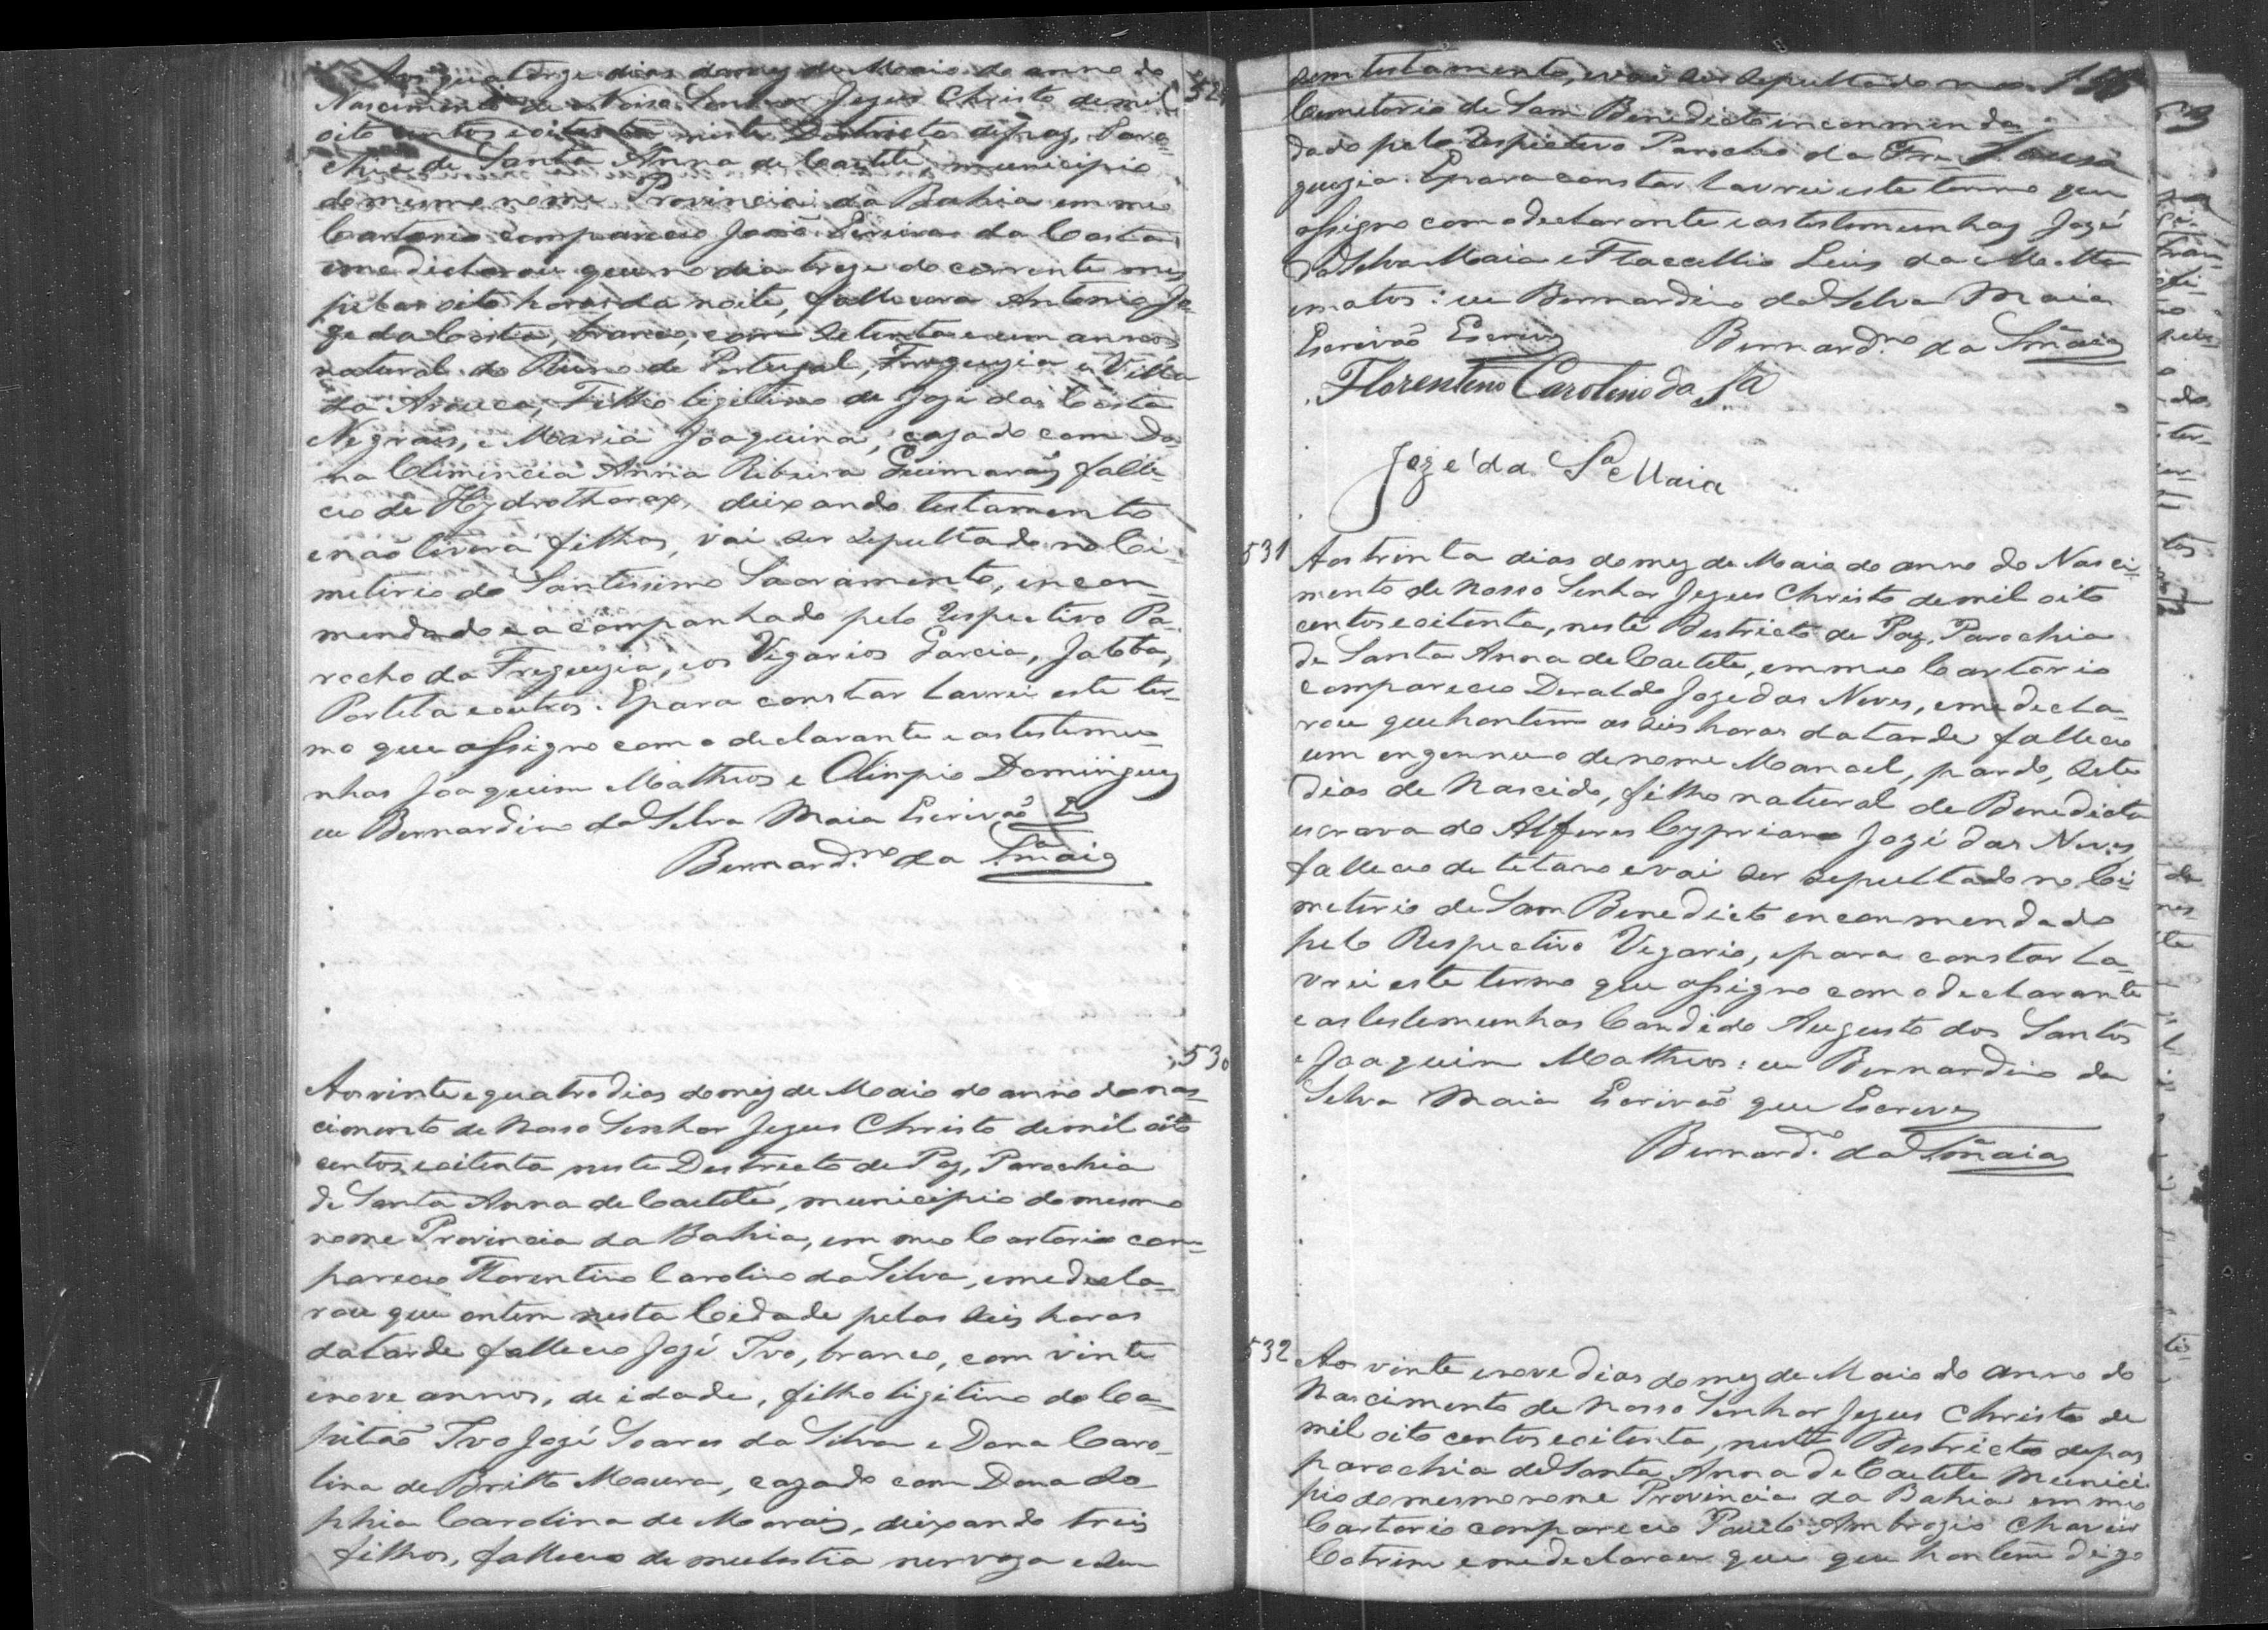 529
Aos quatorze dias do mez de Maio do anno do
Nascimento de Nosso Senhor Jezus Christo de mil
oito centos e oitenta neste Destricto de paz, Paro-
chia de Santa Anna de Caetité, municipio
do mesmo nome Provincia da Bahia em meo
Cartorio compareceo João da Costa
e me declarou que no dia treze do corrente mez
pelas oito horas da noite, fallecera Antonio Jo-
ze da Costa, branco, com setenta e um annos
natural do Reino de Portugal, Freguezia e Villa
da Arouca, Filho legitimo de Jozé da Costa
Negraes, e Maria Joaquina, cazado com Do-
na Clemencia Anna Ribeira Guimarães falle-
ceo de Hydrothorax, deixando testamento
e não tivera filhos, vai ser sepultado no Ci-
meterio do Santissimo Sacramento, encon-
mendado e acompanhado pelo respectivo Pa-
rocho da Freguezia, e os Vigarios Garcia, Jatobá,
Portela e outros. E para constar lavrei este ter-
mo que assigno com o declarante e as testemu-
nhas Joaquim Matheos e Olimpio Domingues
eu Bernardino da Selva Maia Escrivão Es
Bernard.no da S.a Maia
530
Aos vinte e quatro dias do mez de Maio do anno do nas-
cimento de Noso Senhor Jezus Christo de mil oito
centos e oitenta neste Destricto de Paz, Parochia
de Santa Anna de Caetité, municipio do mesmo
nome Provincia da Bahia, em meo Cartorio com-
pareceo Florentino Carolino da Silva, e me decla-
rou que ontem nesta Cidade pelas seis horas
da tarde falleceo Jozé Ivo, branco, com vinte
e nove annos, de idade, filho ligitimo do Ca-
pitão Ivo Jozé Soares da Silva e Dona Caro-
lina de Britto Moura, cazado com Dona So-
phia Carolina de Morais, deixando treis
filhos, falleceo de molestia nervoza e sem
sem testamento, e vai ser sepultado no
Cemeterio de Sam Benedicto enconmenda
dado pelo respectivo Parocho da Fre
guezia. E para constar lavrei este termo que
assigno com o declarante e as testemunhas Jozé
da Selva Maia e Flacellio Luis da Motta
e matos: eu Bernardino da Selva Maia
Escrivão Escrevy Bernard.no da S.a Maia
Florentino Carolino da S.a
Jozé da S.a Maia
531
Aos trinta dias do mez de Maio do anno do Nasci-
mento de nosso Senhor Jezus Christo de mil oito
centos e oitenta, neste Destricto de Paz, Parochia
de Santa Anna de Caetité, em meo Cartorio
compareceo Deraldo Joze das Neves, e me decla-
rou que hontem as seis horas da tarde falleceo
um engennuo de nome Manoel, pardo, sete
dias de Nascido, filho natural de Benedicta
escrava do Alferes Cypriano Jozé das Neves
falleceo de tetano e vai ser sepultado no Ci-
meterio de Sam Benedicto enconmendado
pelo Respectivo Vegario, e para constar la-
vrei este termo que assigno com o declarante
e as testemunhas Candido Augusto dos Santos
e Joaquim Matheos: eu Bernardino da
Selva Maia Escrivão que Escrevy
Bernard.no da S.a Maia
532
Aos vinte e nove dias do mez de Maio do anno do
Nascimento de Nosso Senhor Jezus Christo de
mil oito centos e oitenta, neste Destricto de pas
parochia de Santa Anna de Caetité Munici
pio do mesmo nome Provincia da Bahia em meo
Cartorio compareceo Paulo Ambrozio Chaves
Cotrim e me declarou que que hontem digo